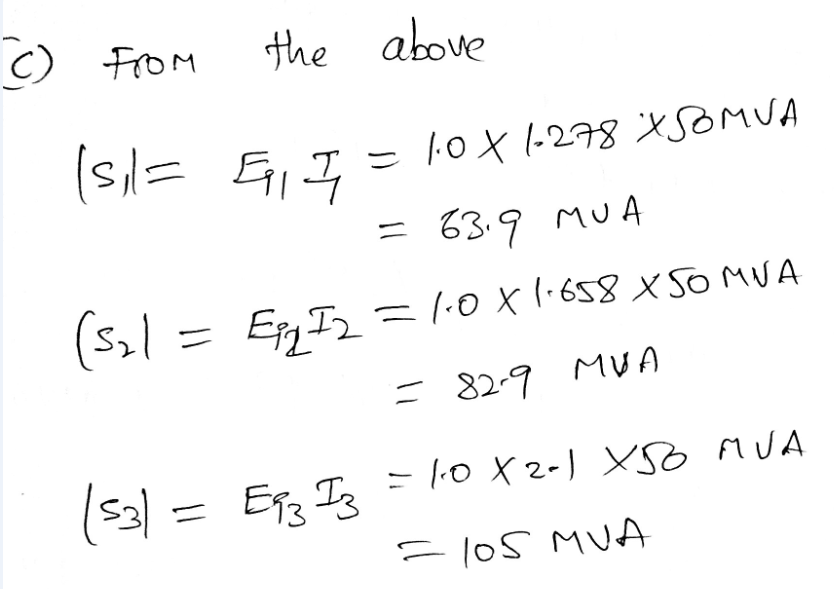 (c) From the above
|S₁| = Eg₁ I₁ = 1.0 X 1.278 X 50 MVA
= 63.9 MVA
|S₂| = Eg₂ I₂ = 1.0 X 1.658 X 50 MVA
= 82.9 MVA
|S₃| = Eg₃ I₃ = 1.0 X 2.1 X 50 MVA
= 105 MVA